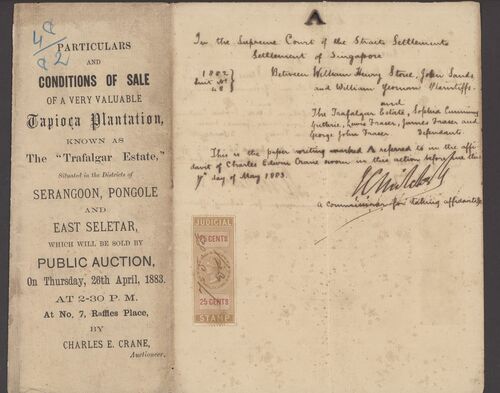 48
a2
PARTICULARS
AND
CONDITIONS OF SALE
OF A VERY VALUABLE
Tapioca Plantation,
KNOWN AS
The "Trafalgar Estate,"
Situated in the Districts of
SERANGOON, PONGOLE
AND
EAST SELETAR,
WHICH WILL BE SOLD BY
PUBLIC AUCTION,
On Thursday, 26th April, 1883.
AT 2-30 P. M.
At No. 7, Raffles Place,
BY
CHARLES E. CRANE,
Auctioneer.
A
In the Supreme Court of the Straits Settlements
Settlement of Singapore
1882
Suit No
48
Between William Henry Stone, John Sands
and William Yeoman Plaintiffs
and
The Trafalgar Estate, Sophia Cumming
Guthrie, Lewis Fraser, James Fraser and
George John Fraser Defendants
This is the paper writing marked A referred to in the affi
davit of Charles Edwin Crane sworn in this action before me this
day of May 1883.
A commissioner for taking affidavits &c
JUDICIAL
25 CENTS
25 CENTS
STAMP